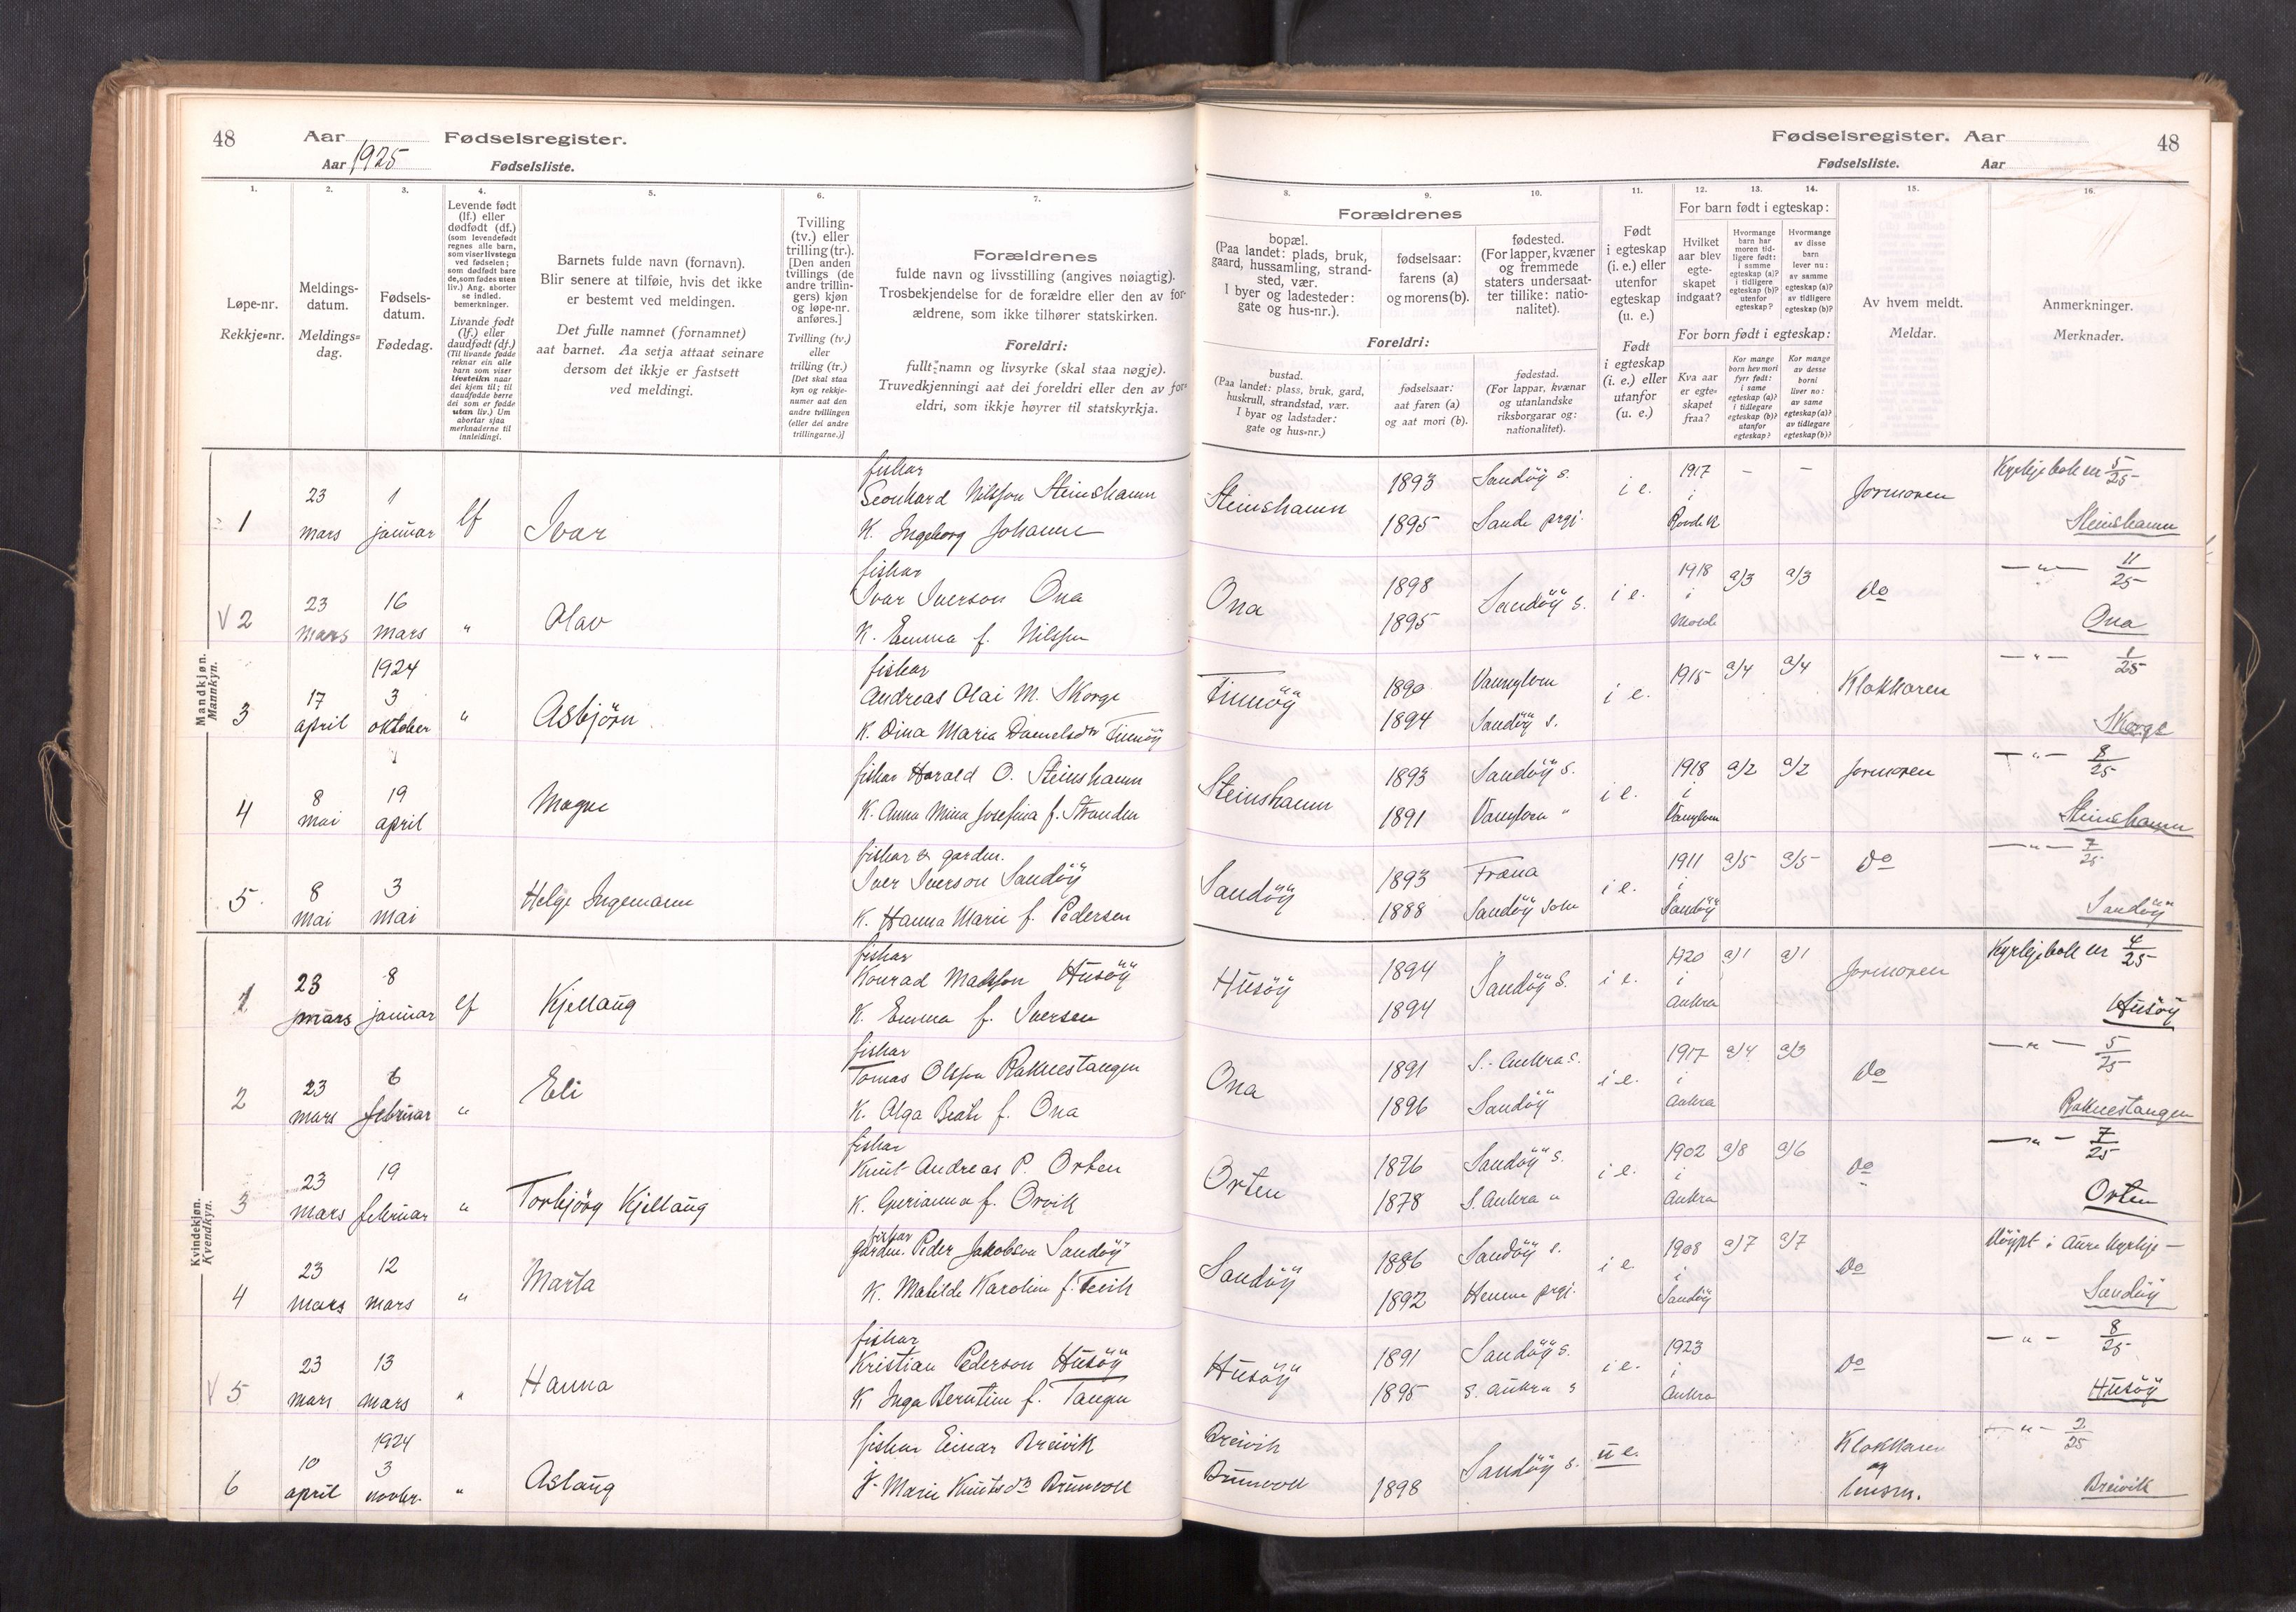 48 Aar Fødselsregister.
Aar 1925 Fødselsliste.
1. 2. 3. 4. 5. 6. 7.
Løpe-nr.
Rekkje=nr.
Meldings-
datum.
Meldings=
dag.
Fødsels-
datum.
Fødedag.
Levende født
(lf.) eller
dødfødt (df.)
(som levendefødt
regnes alle barn,
som viser livstegn
ved fødselen;
som dødfødt bare
de, som fødes uten
liv.) Ang. aborter
se indled.
bemerkninger.
Livande født
(lf.) eller
daudfødt (df.)
(Til livande fødde
reknar ein alle
barn som viser
livsteikn naar
dei kjem til; til
daudfødde berre
dei som er fødde
utan liv.) Um
abortar sjaa
merknaderne til
innleidingi.
Barnets fulde navn (fornavn).
Blir senere at tilføie, hvis det ikke
er bestemt ved meldingen.
Det fulle namnet (fornamnet)
aat barnet. Aa setja attaat seinare
dersom det ikkje er fastsett
ved meldingi.
Tvilling
(tv.) eller
trilling (tr.).
[Den anden
tvillings (de
andre trillin-
gers) kjøn
og løpe-nr.
anføres.]
Tvilling (tv.)
eller
trilling (tr.)
[Det skal staa
kyn og rekkje-
numer aat den
andre tvillingen
(eller dei andre
trillingarne.)]
Forældrenes
fulde navn og livsstilling (angives nøiagtig).
Trosbekjendelse for de forældre eller den av for-
ældrene, som ikke tilhører statskirken.
Foreldri:
fullt namn og livsyrke (skal staa nøgje).
Truvedkjenningi aat dei foreldri eller den av for-
eldri, som ikkje høyrer til statskyrkja.
Fødselsregister. Aar 48
Fødselsliste. Aar
8. 9. 10. 11. 12. 13. 14. 15. 16.
Forældrenes
bopæl.
(Paa landet: plads, bruk,
gaard, hussamling, strand-
sted, vær.
I byer og ladesteder:
gate og hus-nr.).
fødselsaar:
farens (a)
og morens (b).
fødested.
(For lapper, kvæner
og fremmede
staters undersaat-
ter tillike: natio-
nalitet).
Foreldri:
bustad.
(Paa landet: plass, bruk, gard,
huskrull, strandstad, vær.
I byar og ladstader:
gate og hus=nr.)
fødselsaar:
aat faren (a)
og aat mori (b).
fødestad.
(For lappar, kvænar
og utanlandske
riksborgarar og:
nationalitet).
Født
i egteskap
(i. e.) eller
utenfor
egteskap
(u. e.)
Født
i egteskap
(i. e.) eller
utanfor
egteskap
(u. e.)
For barn født i egteskap:
Hvilket
aar blev
egte-
skapet
indgaat?
Hvormange
barn har
moren tid-
ligere født:
i samme
egteskap (a)?
i tidligere
egteskap (b)?
utenfor
egteskap?
Hvormange
av disse
barn
lever nu:
av samme
egteskap (a)?
av tidligere
egteskap (b)?
For born født i egteskap:
Kva aar
er egte-
skapet
fraa?
Kor mange
born hev mori
fyrr født:
i same
egteskap (a)?
i tidlegare
egteskap (b)?
utanfor
egteskap?
Kor mange
av desse
borni
liver no:
av same
egteskap (a)?
av tidlegare
egteskap (b)?
Av hvem meldt.
Meldar.
Anmerkninger.
Merknader.
Mandkjøn.
Mannkyn.
1 23 mars 1 januar lf Ivar
fiskar
Leonhard Nilsson Steinshamn
K. Ingeborg Johanne
Steinshamn 1893 1895 Sandöy s. Sande prgj. i e. 1917 i - - Jormoren Kyrkjebok nr 5/25 Steinshamn
V 2 23 mars 16 mars " Olav
fiskar
Ivar Iverson Ona
K. Emma f. Nilssen
Ona 1898 1895 Sandöy s. i e. 1918 i Molde a/3 a/3 Do — " — 11/25 Ona
3 17 april 1924 3 oktober " Asbjörn
fiskar
Andreas Olai M. Skorge
K. Dina Maria Danielsdtr Finnöy
Finnöy 1890 1894 Vannylven Sandöy s. i e. 1915 a/4 a/4 Klokkaren — " — 1/25 Skorge
4 8 mai 19 april Magne
fiskar Harald O. Steinshamn
K. Anna Mina Josefina f. Stranden
Steinshamn 1893 1891 Sandöy s. Vannylven " i e. 1918 i Vanylven a/2 a/2 Jormoren — " — 8/25 Steinshamn
5 8 mai 3 mai Helge Ingemann
fiskar & garden.
Iver Iverson Sandöy
K. Hanna Marie f. Pedersen
Sandöy 1893 1888 Fræna Sandöy sokn i e. 1911 i Sandöy a/5 a/5 Do — " — 7/25 Sandöy
Kvindekjøn.
Kvendkyn.
1 23 mars 8 januar lf Kjellaug
fiskar
Konrad Madsson Husöy
K. Emma f. Iversen
Husöy 1894 1894 Sandöy s. i e. 1920 i Aukra a/1 a/1 Jormoren Kyrkjebok nr 4/25 Husöy
2 23 mars 6 februar " Eli
fiskar
Tomas Olsson Raknestangen
K. Olga Beate f. Ona
Ona 1891 1896 S.-Aukra s. Sandöy i e. 1917 i Aukra a/4 a/3 Do — " — 5/25 Raknestangen
3 23 mars 19 februar " Torbjörg Kjellaug
fiskar
Knut Andreas P. Orten
K. Gurianna f. Orvik
Orten 1876 1878 Sandöy s. S. Aukra " i e. 1902 i Aukra a/8 a/6 Do — " — 7/25 Orten
4 23 mars 12 mars " Marta
fiskar
garden. Peder Jakobson Sandöy
K. Matilde Karoline f.
Sandöy 1886 1892 Sandöy s. Hemne prgj. i e. 1908 i Sandöy a/7 a/7 Do Döypt i Aure kyrkje — Sandöy
V 5 23 mars 13 mars " Hanna
fiskar
Kristian Pederson Husöy
K Inga Berntine f. Tangen
Husöy 1891 1895 Sandöy s. S. Aukra s i e. 1923 i Aukra Do — " — 8/25 Husöy
6 10 april 1924 3 novbr. " Aslaug
fiskar Einar Breivik
j. Marie Knutsdtr Brunvoll
Breivik Brunvoll 1898 Sandöy s. u e. Klokkaren og — " — 2/25 Breivik